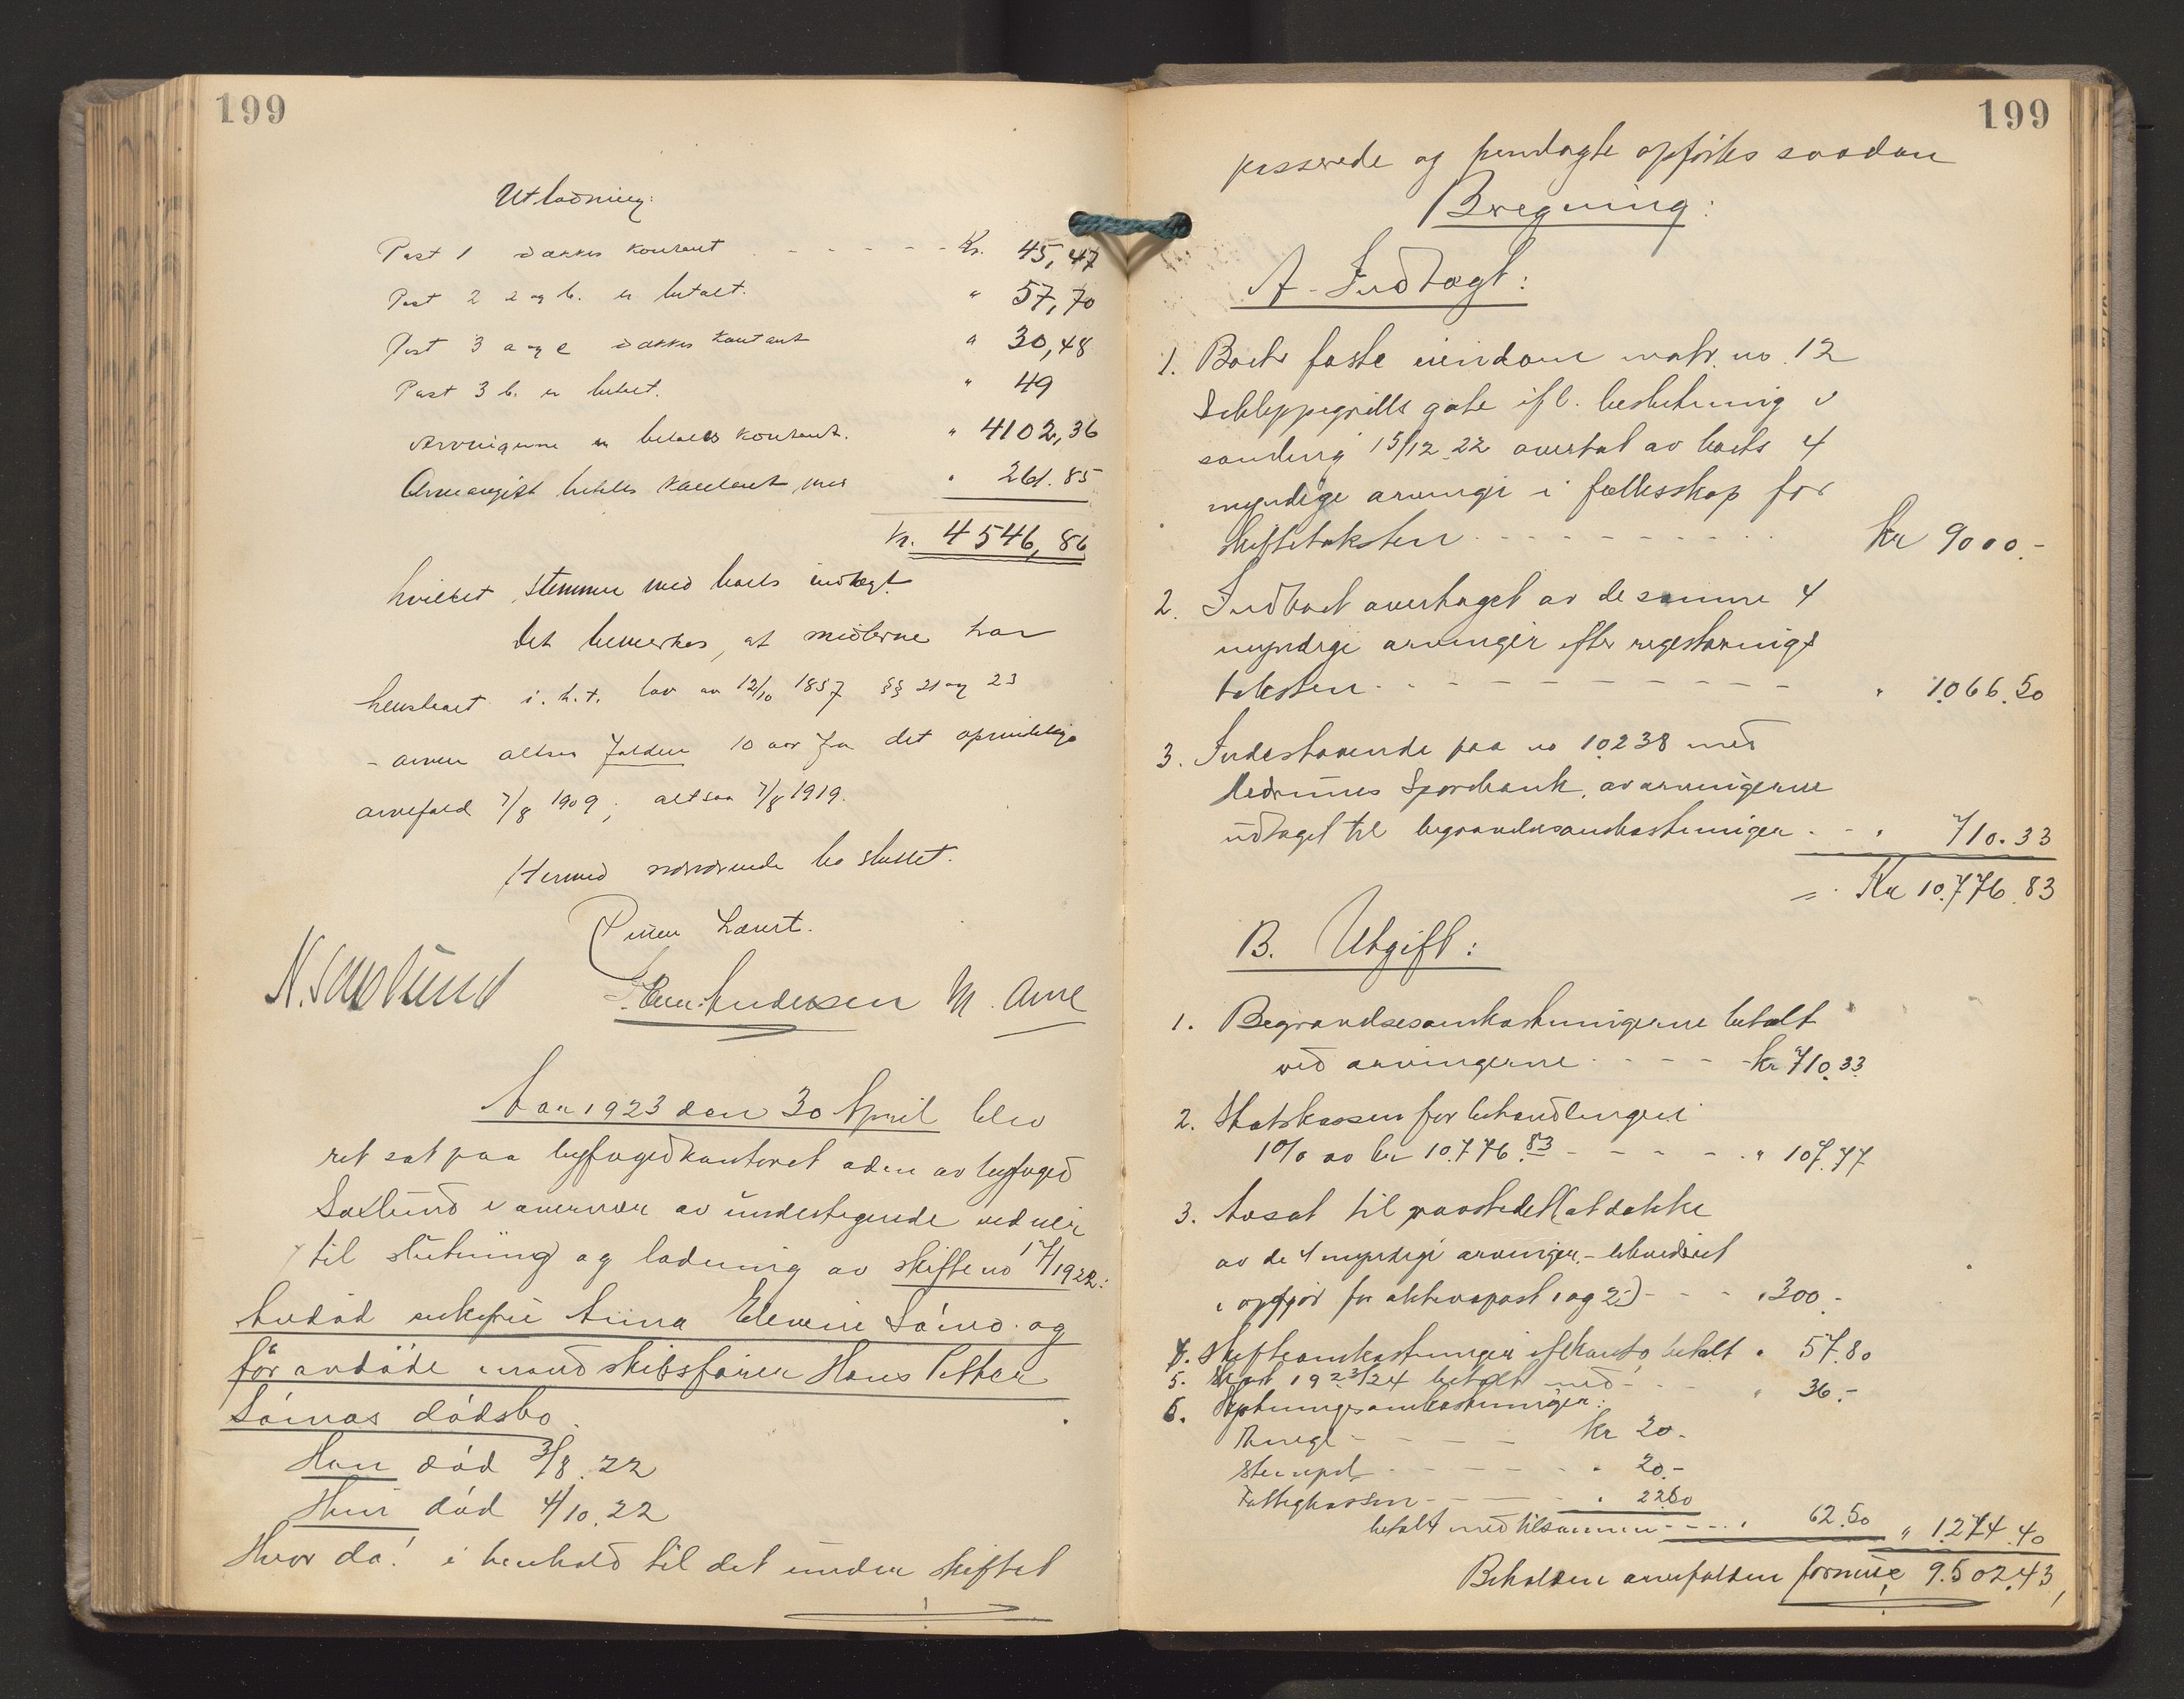 199
Utlodning:
Post 1 dækkes kontant - - - - - Kr. 45,47
Post 2 a og b. er betalt. " 57,70
Post 3 a og c dækkes kontant " 30,48
Post 3 b. er betalt. " 49
Arvingerne betales kontant. " 4102,36
Arveavgift betales kontant med " 261.85
Kr. 4546,86
hvilket stemmer med boets indtægt.
Det bemerkes, at midlerne har
henstaaet i. h. t. lov av 12/10 1857 §§ 21 og 23
- arven altsaa falden 10 aar fra det oprindelige
arvefald 7/8 1909; altsaa 7/8 1919.
Hermed nærværende bo sluttet.
Retten hævet.
N. Saxlund Andersen M. Arne
Aar 1923 den 30 April blev
ret sat paa byfogedkontoret aden av byfoged
Saxlund i overvær av undertegnede vidner
til slutning og lodning av skifte no 17/1922:
Avdød enkefru Anna Elevine Sørnæs og
før avdøde mand skibsfører Hans Petter
Sørnæs dødsbo.
Han død 3/8. 22
Hun død 4/10. 22
Hvor da! i henhold til det under skiftet
199
passerede og fremlagte opførtes saadan
Beregning:
A - Indtægt:
1. Boets faste eiendom matr. no. 12
Schleppegrells gate ifl. beslutning i
samling 15/12. 22 overtat av boets 4
myndige arvinger i fællesskap for
skiftetaksten - - - - - - - - - Kr 9000.-
2. Indboet overtaget av de samme 4
myndige arvinger efter registrerings
taksten - - - - - - - - - - " 1066.50
3. Indestaaende paa no 10238 med
Sparebank, av arvingerne
udtaget til begravelsesomkostninger - - " 710.33
= Kr 10.776.83
B. Utgift:
1. Begravelsesomkostningerne betalt
ved arvingerne - - - - Kr 710.33
2. Statskassen for behandlingen
1% av kr 10.776.83 - - - - " 107.77
3. Avsat til gravstedet (at dække
av de 4 myndige arvinger, - likvideret
i opgjør for aktivapost 1 og 2) - - - " 300.-
4. Skifteomkostninger ifl. konto betalt " 57.80
5. Skat 1923/24 betalt med - - - " 36.-
6. omkostninger:
- - - - - kr 20.-
Stempel - - - - - " 20.-
Fattigkassen - - - - " 22.50
betalt med tilsammen - - - - " 62.50 " 1.274.40
Beholden arvefalden formue 9.502.43